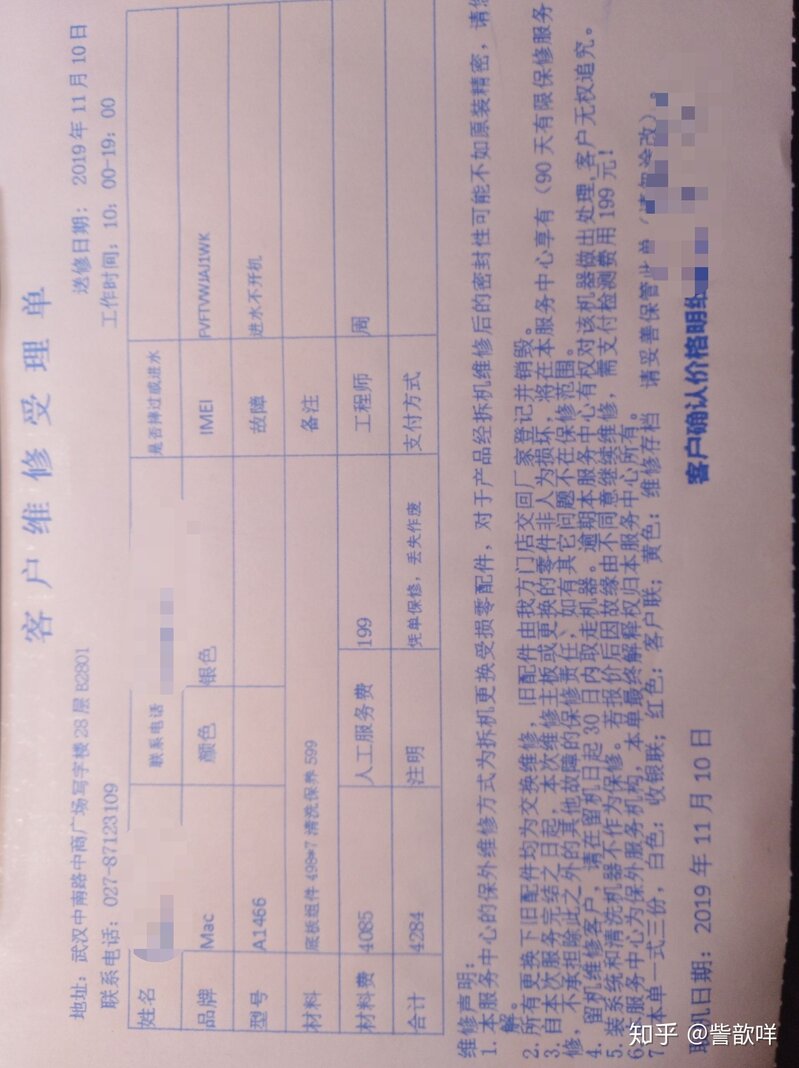 客户维修受理单
地址：武汉中南路中商广场写字楼28层B2801
送修日期：2019年11月10日
联系电话：027-87123109
工作时间：10：00-19：00
姓名 联系电话 是否摔过或进水
品牌 Mac 颜色 银色 IMEI FVFTVWJAJ1WK
型号 A1466 故障 进水不开机
材料 底板组件499*7 清洗保养599 备注
材料费 4085 人工服务费 199 工程师 周
合计 4284 注明 凭单保修，丢失作废 支付方式
维修声明：
1. 本服务中心的保外维修方式为拆机更换受损零配件，对于产品经拆机维修后的密封性可能不如原装精密，请您
解。
2. 所有更换下旧配件均为交换维修，旧配件由我方门店交回厂家登记并销毁。
3. 自本次服务完结之日起，本次维修主板或更换的零件非人为损坏，将在本服务中心享有（90天有限保修服务
修，不承担除此之外的其他故障的保修责任，如有其它问题不在保修范围。
4. 留机维修客户，请在留机日起30日内取走机器。逾期本服务中心有权对该机器做出处理,客户无权追究。
5. 装系统和清洗机器不作为保修。若报价后因故缘由不同意继续维修，需支付检测费用199元！
6 本服务中心为保外服务机构，本单最终解释权归本服务中心所有。
7 本单一式三份，白色：收银联；红色：客户联；黄色：维修存档 请妥善保管此单（请勿涂改）
客户确认价格明细
取机日期：2019年11月10日
知乎 @訾歆咩